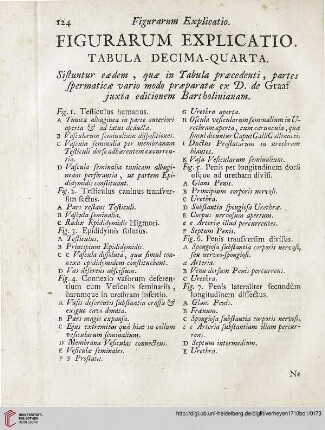 124 Figurarum Explicatio.
FIGURARUM EXPLICATIO.
TABULA DECIMA-QUARTA.
Sistuntur eædem, quæ in Tabula præcedenti, partes
spermaticæ vario modo præparatæ ex D. de Graaf
juxta editionem Bartholinianam.
Fig. 1. Testiculus humanus.
A Tunica albuginea in parte anteriori
aperta & ad latus deducta.
B Vasculorum seminalium dispositiones.
C Vascula seminalia per membranam
Testiculi dorso adhærentem excurrentia.
D Vascula seminalia tunicam albugineam
perforantia, ut partem Epididymidis
constituant.
Fig. 2. Testiculus caninus transversim
sectus.
A Pars restans Testiculi.
B Vascula seminalia.
C Radix Epididymidis Higmori.
Fig. 3. Epididymis solutus.
A Testiculus.
B Principium Epididymidis.
C C Vascula dissoluta, quæ simul connexa
epididymidem constituunt.
D Vas deferens abscissum.
Fig. 4. Connexio vasorum deferentium
cum Vesiculis seminariis,
harumque in urethram insertio.
A Vasis deferentis substantia crassa &
exigua cavo donata.
B Pars magis expansa.
C Ejus extremitas quâ hiat in collum
vesicularum seminalium.
D Membrana Vesiculas connectens.
E Vesiculæ seminales.
F F Prostatæ.
G Urethra aperta.
H Oscula vesicularum seminalium in Urethram
aperta, cum caruncula, quæ
simul dicuntur Caput Galli Gallinacei.
I Ductus Prostatarum in urethram
hiantes.
Vasa Vesicularum seminalium.
Fig. 5. Penis per longitudinem dorsi
usque ad urethram divisus.
A Glans Penis.
B Principium corporis nervosi.
C Urethra.
D Substantia spongiosa Urethræ.
E Corpus nervosum apertum.
F Arteriæ Penem percurrentes.
G Septum Penis.
Fig. 6. Penis transversim divisus.
A Spongiosa substantia corporis nervosi,
seu nervoso-spongiosi.
B Arteria.
C Vena dorsum Penis percurrens.
D Urethra.
Fig. 7. Penis lateraliter secundùm
longitudinem dissectus.
A Glans Penis.
B Frænum.
C Spongiosa substantia corporis nervosi.
D Septum intermedium.
E Urethra.
Ne
http://digi.ub.uni-heidelberg.de/diglit/verheyen1710bd1/0173